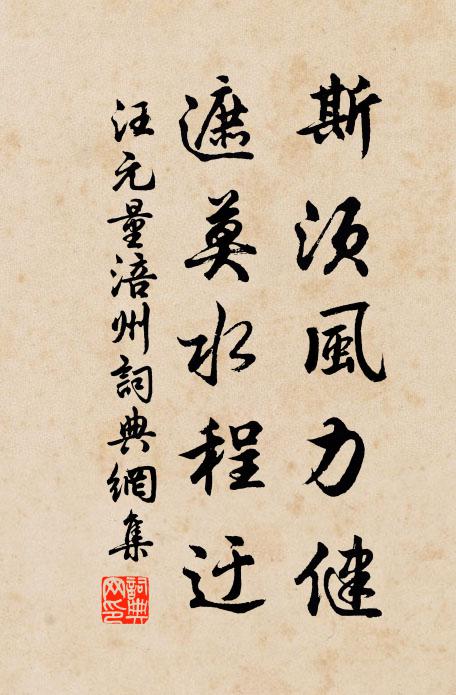 斯須風力健
遮莫水程迂
汪元量涪州詞典網集
詞典網印